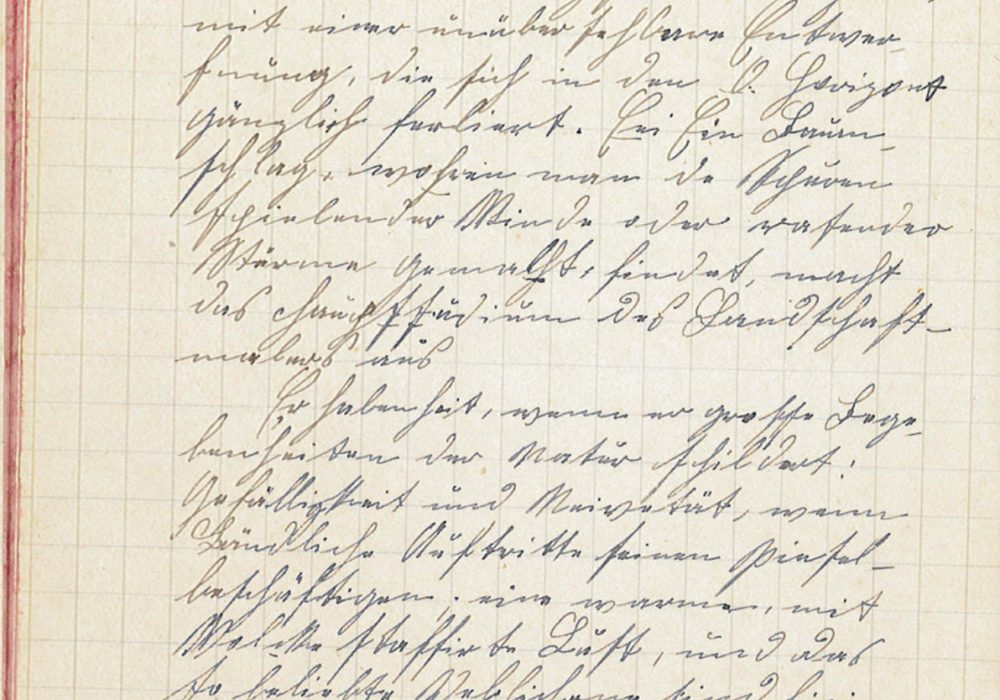 mit einer unübersehbare Entwer-
fnung, die sich in den O. Horizont
gänzlich ferliert. Ein Baum-
schlag, wohren man de Schuren
spielender Winde oder rasender
Stürme gemacht, findet, macht
das des Landschaft-
malers aus
Erhabenheit, wenn er grosse Bege-
benheiten der Natur schildert;
Gefälligkeit und Neivetät, wenn
Ländliche Auftritte seinen Pinsel-
beschäftigen; eine warme, mit
Wolcke staffirte Luft, und das
so beliebte